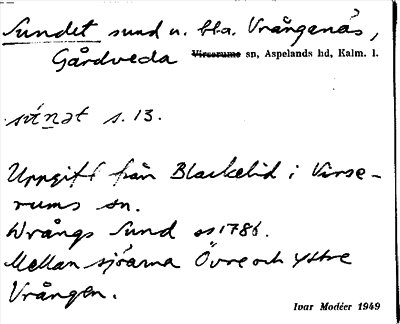 Sundet sund u. bla. Vrångenäs,
Gårdveda Virserums sn, Aspelands hd, Kalm. l.
s. 13.
Uppgift från Blackelid i Virse-
rums sn.
Wrångs Sund 1786.
Mellan sjöarna Övre och Yttre
Vrången.
Ivar Modéer 1949